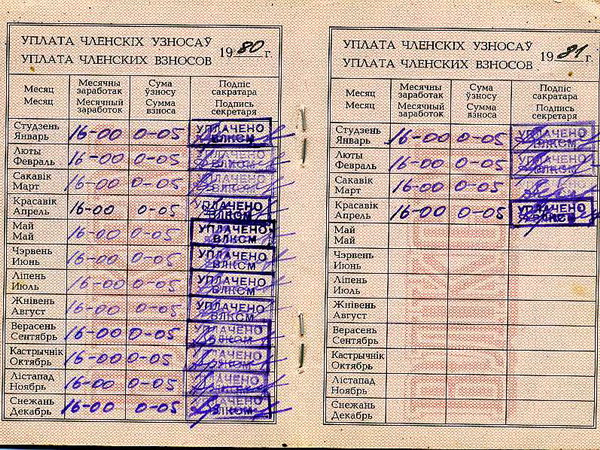 УПЛАТА ЧЛЕНСКІХ УЗНОСАЎ
УПЛАТА ЧЛЕНСКИХ ВЗНОСОВ 1980 г.
Месяц Месячны заработак Сума ўзносу Подпіс сакратара
Месяц Месячный заработок Сумма взноса Подпись секретаря
Студзень Январь 16-00 0-05 УПЛАЧЕНО ВЛКСМ
Люты Февраль 16-00 0-05 УПЛАЧЕНО ВЛКСМ
Сакавік Март 16-00 0-05 УПЛАЧЕНО ВЛКСМ
Красавік Апрель 16-00 0-05 УПЛАЧЕНО ВЛКСМ
Май Май 16-00 0-05 УПЛАЧЕНО ВЛКСМ
Чэрвень Июнь 16-00 0-05 УПЛАЧЕНО ВЛКСМ
Ліпень Июль 16-00 0-05 УПЛАЧЕНО ВЛКСМ
Жнівень Август 16-00 0-05 УПЛАЧЕНО ВЛКСМ
Верасень Сентябрь 16-00 0-05 УПЛАЧЕНО ВЛКСМ
Кастрычнік Октябрь 16-00 0-05 УПЛАЧЕНО ВЛКСМ
Лістапад Ноябрь 16-00 0-05 УПЛАЧЕНО ВЛКСМ
Снежань Декабрь 16-00 0-05 УПЛАЧЕНО ВЛКСМ
УПЛАТА ЧЛЕНСКІХ УЗНОСАЎ
УПЛАТА ЧЛЕНСКИХ ВЗНОСОВ 1981 г.
Месяц Месячны заработак Сума ўзносу Подпіс сакратара
Месяц Месячный заработок Сумма взноса Подпись секретаря
Студзень Январь 16-00 0-05 УПЛАЧЕНО ВЛКСМ
Люты Февраль 16-00 0-05 УПЛАЧЕНО ВЛКСМ
Сакавік Март 16-00 0-05
Красавік Апрель 16-00 0-05 УПЛАЧЕНО ВЛКСМ
Май Май
Чэрвень Июнь
Ліпень Июль
Жнівень Август
Верасень Сентябрь
Кастрычнік Октябрь
Лістапад Ноябрь
Снежань Декабрь